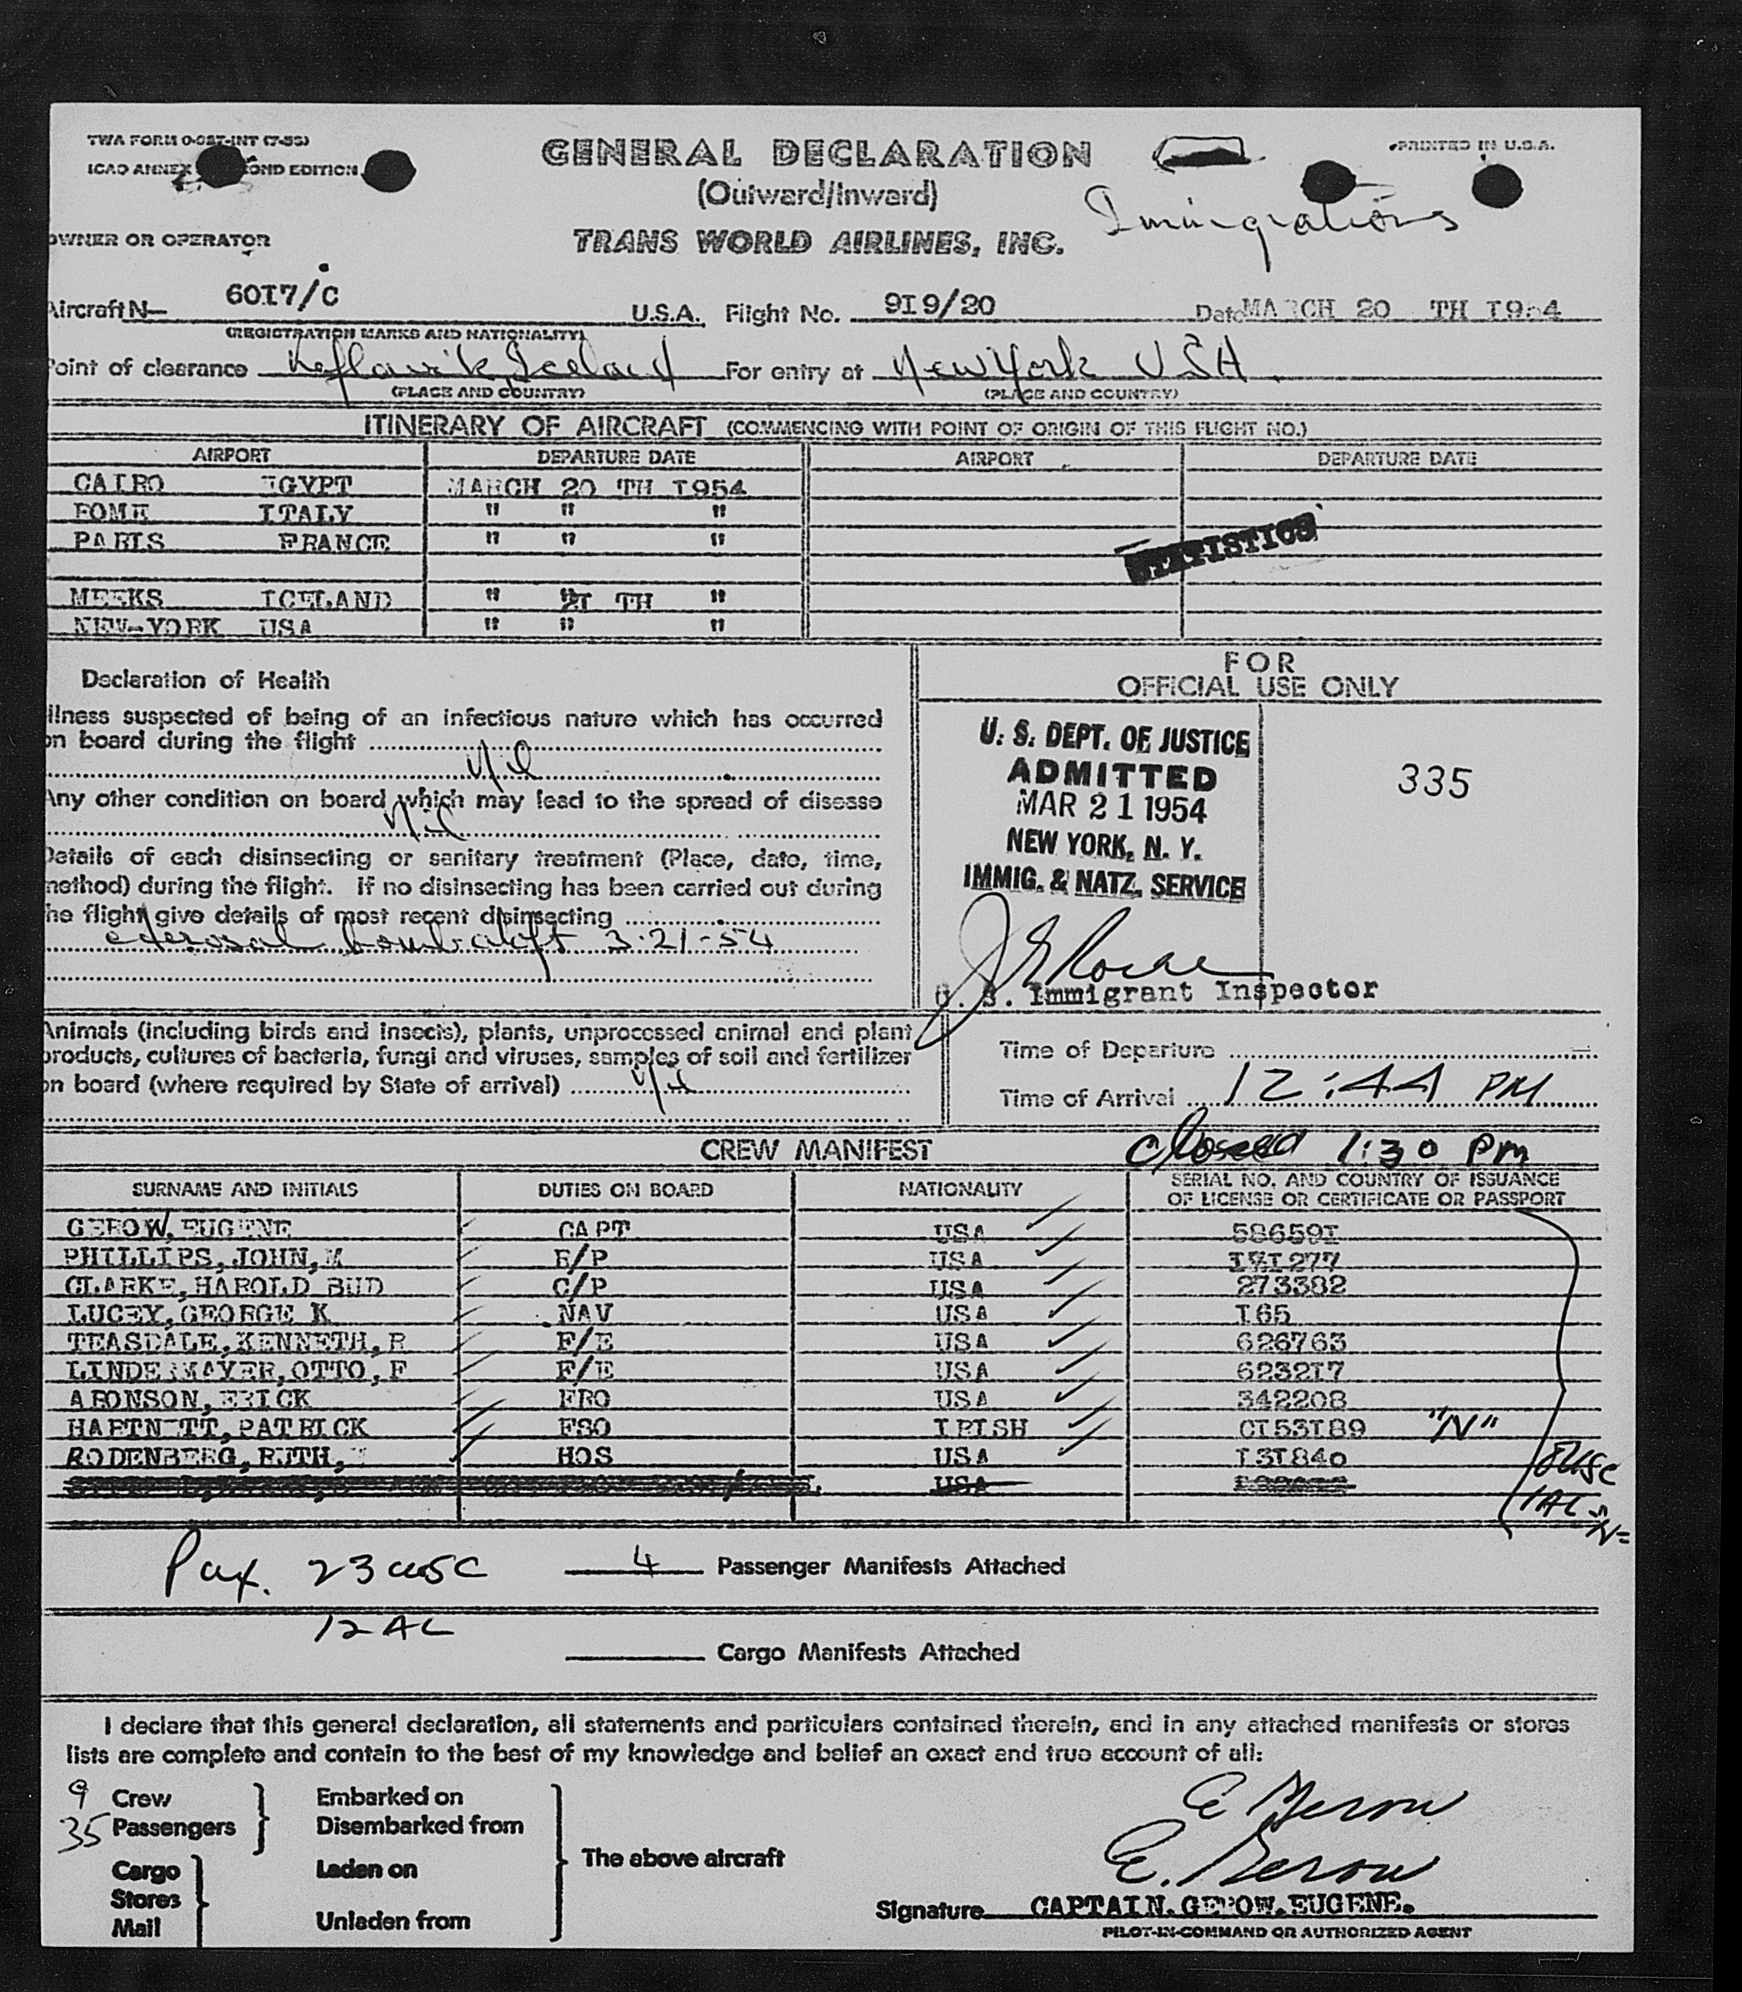 TWA FORM 0-027-INT (7-53)
ICAO ANNEX OND EDITION
GENERAL DECLARATION
PRINTED IN U.S.A.
(Outward/Inward)
Immigrations
OWNER OR OPERATOR
TRANS WORLD AIRLINES, INC.
Aircraft N— 60I7/C U.S.A. Flight No. 9I9/20 Date MARCH 20 TH I954
(REGISTRATION MARKS AND NATIONALITY)
Point of clearance Keflavik, Iceland For entry at New York USA.
(PLACE AND COUNTRY) (PLACE AND COUNTRY)
ITINERARY OF AIRCRAFT (COMMENCING WITH POINT OF ORIGIN OF THIS FLIGHT NO.)
AIRPORT DEPARTURE DATE AIRPORT DEPARTURE DATE
CAIRO EGYPT MARCH 20 TH I954
ROME ITALY " " "
PARIS FRANCE " " "
STATISTICS
MEEKS ICELAND " 2I TH "
NEW-YORK USA " " "
Declaration of Health
Illness suspected of being of an infectious nature which has occurred
on board during the flight
Nil
Any other condition on board which may lead to the spread of disease
Nil
Details of each disinsecting or sanitary treatment (Place, date, time,
method) during the flight. If no disinsecting has been carried out during
the flight give details of most recent disinsecting
3-21-54
FOR
OFFICIAL USE ONLY
U. S. DEPT. OF JUSTICE
ADMITTED
MAR 21 1954
NEW YORK, N. Y.
IMMIG. & NATZ. SERVICE
335
U. S. Immigrant Inspector
Animals (including birds and insects), plants, unprocessed animal and plant
products, cultures of bacteria, fungi and viruses, samples of soil and fertilizer
on board (where required by State of arrival) Nil
Time of Departure
Time of Arrival 12:44 PM
CREW MANIFEST closed 1:30 pm
SURNAME AND INITIALS DUTIES ON BOARD NATIONALITY SERIAL NO. AND COUNTRY OF ISSUANCE
OF LICENSE OR CERTIFICATE OR PASSPORT
GEROW, EUGENE CAPT USA 58659I
PHILLIPS, JOHN, M R/P USA
CLARKE, HAROLD BUD C/P USA 273382
LUCEY, GEORGE K NAV USA I65
TEASDALE, KENNETH, R F/E USA 626763
LINDERMAYER, OTTO, F F/E USA 6232I7
ARONSON, ERICK FRO USA 342208
HARTNETT, PATRICK FSO IRISH CI53I89 "N"
RODENBERG, RUTH, HOS USA I3I840
USA
8 USC
1 AL - "N"
Pax. 23 USC 4 Passenger Manifests Attached
12 AL
Cargo Manifests Attached
I declare that this general declaration, all statements and particulars contained therein, and in any attached manifests or stores
lists are complete and contain to the best of my knowledge and belief an exact and true account of all:
9 Crew
35 Passengers
Embarked on
Disembarked from
Cargo
Stores
Mail
Laden on
Unladen from
The above aircraft
E Gerow
E. Gerow
Signature CAPTAIN. GEROW. EUGENE.
PILOT-IN-COMMAND OR AUTHORIZED AGENT